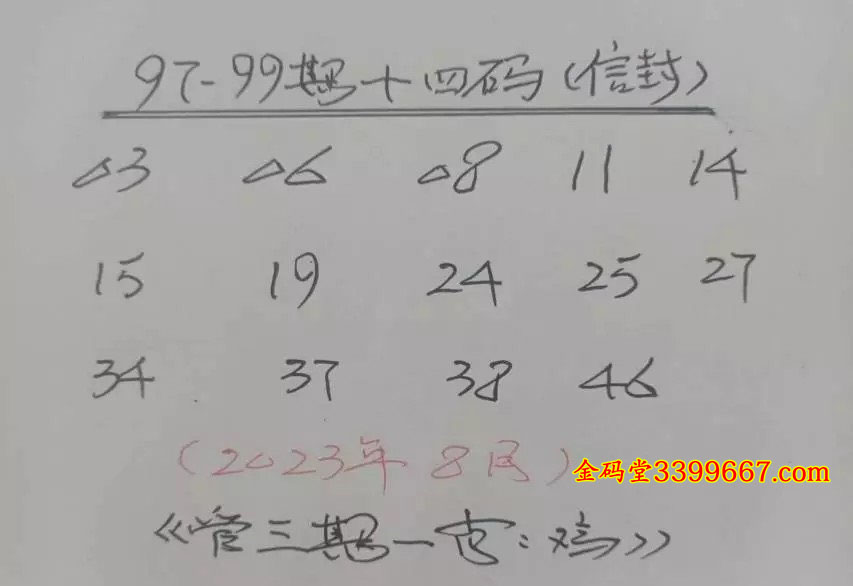 97-99期十四码(信封)
03 06 08 11 14
15 19 24 25 27
34 37 38 46
(2023年8月)
金码堂3399667.com
《管三期一肖:鸡》